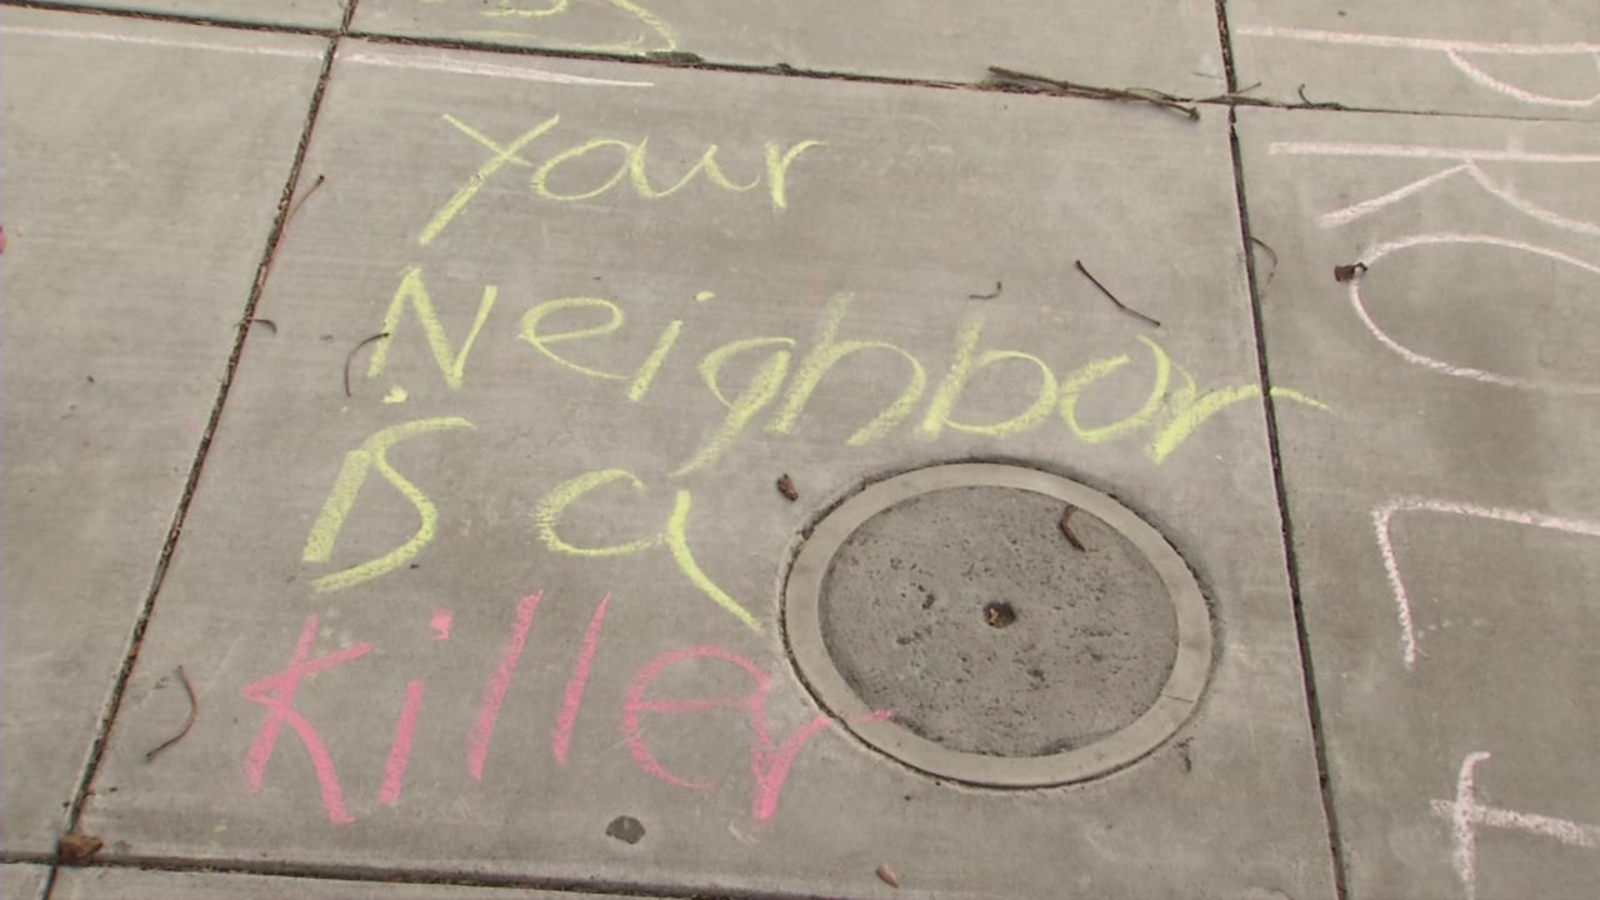 Your
Neighbor
is a
Killer